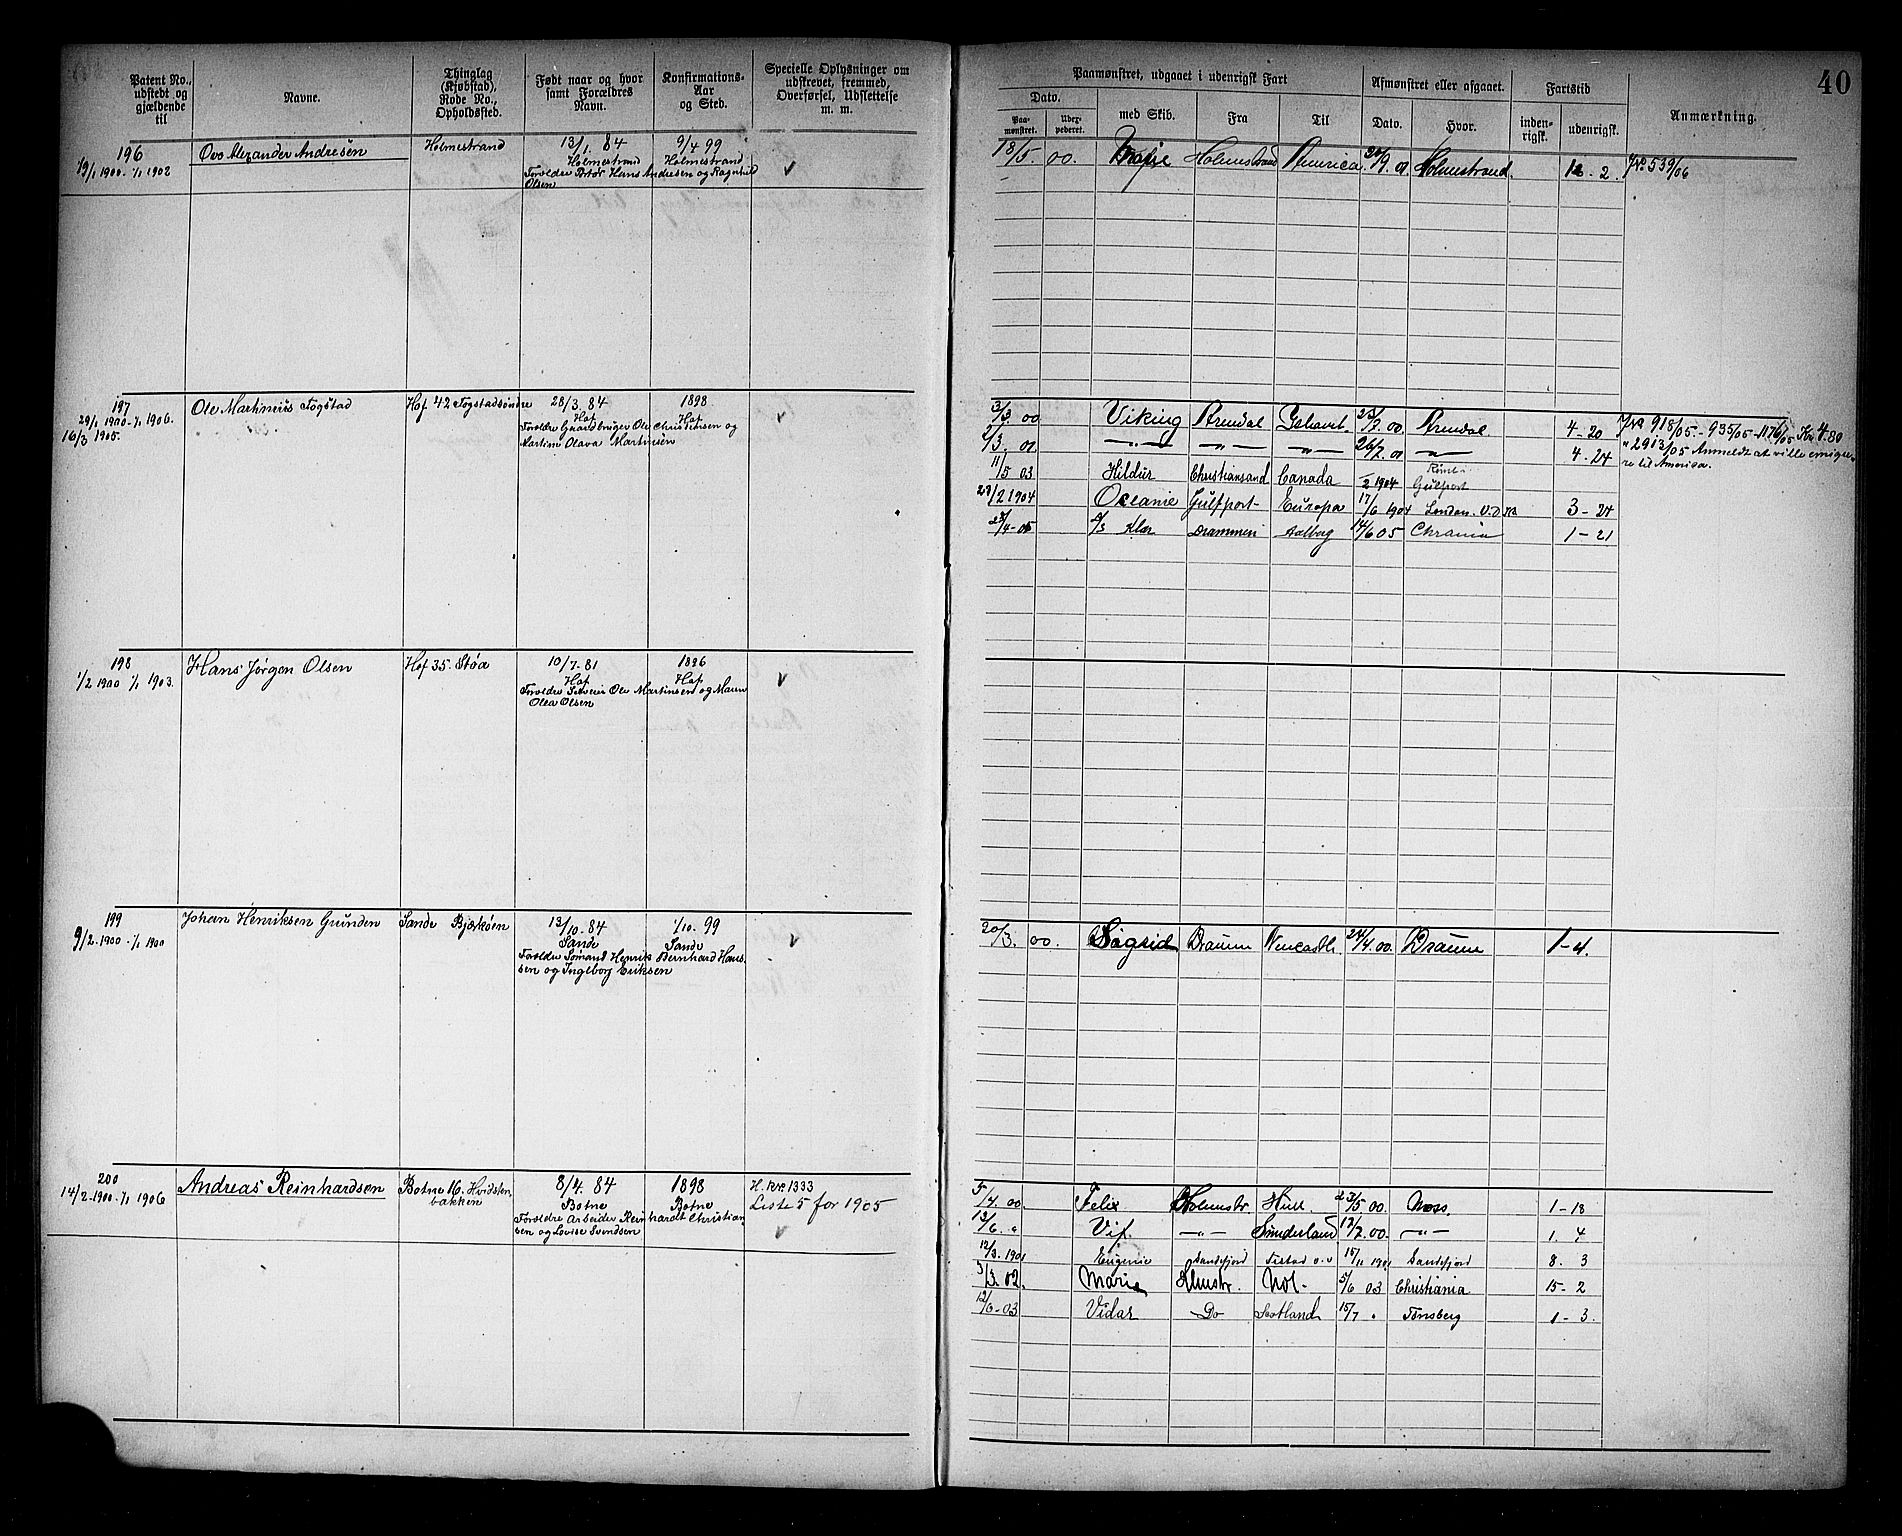 40
Patent No., udstedt og gjældende til
Navne.
Thinglag (Kjøbstad), Rode No., Opholdssted.
Født naar og hvor samt Forældres Navn.
Konfirmations-Aar og Sted.
Specielle Oplysninger om udskrevet, fremmed, Overførsel, Udslettelse m. m.
Paamønstret, udgaaet i udenrigsk Fart
Dato.
Paa-mønstret.
med Skib.
Fra
Til
Afmønstret eller afgaaet.
Dato.
Hvor.
Fartstid
inden-rigsk.
udenrigsk.
Anmærkning.
196
19/1 1900 - 1/1 1902
Ovo Alexander Andresen
Holmestrand
13/1. 84
Holmestrand
9/4 99
Holmestrand
Forældre Hans Andresen og Ragnhild
Olsen
18/5. 00. Holmstrand America 01 Holmestrand 2. No 539/06
197
29/1 1900 - 1/1 1906.
16/3 1905.
Ole Martinius Fogstad
Hof 42 Fogstadsøndre
28/3. 84
Hof
1898
Hof
Forældre Gaardbruger Ole Christensen og
Martine Olava Martinsen
3/3. 00 Viking Arendal 00. Arendal. 4-20
2/3. 01 —„— —„— —„— 26/7. 01 —„— 4-24
11/5 03 Hildur Christiansand Canada 2 1904 Gulfport
29/2 1904 Oceanie Gulfport- Europa 17/6 1904 London. 3-24
05 S/S Klar Drammen Aalborg 14/6 05 Chrania 1-21
No 918/05 - 935/05 - 1176/05 Kr 4.80
„ 2913/05 Anmeldt at ville emigre-
re til Amerika.
198
1/2 1900 1/1 1903.
Hans Jørgen Olsen
Hof 35. Støa
10/7-81
Hof
1896
Hof
Forældre Ole Martinsen og Maren
Olea Olsen
199
9/2-1900-1/1 1900
Johan Henriksen Grunden
Sande Bjerkøen
13/10. 84
Sande
1/10. 99
Sande
Forældre Sømand Henrik Bernhard Hans-
sen og Ingeborg Eriksen
20/3. 00. Sigrid 24/4. 00. 1-4.
200
14/2-1900-1/1 1906
Andreas Reinhardsen
Botne 16. Hvidsten
bakken
8/4. 84
Botne
1898
Botne
H. No. 1333
Liste 5 for 1905
Forældre Arbeider Reinhardt Christian
sen og Lovise Svendsen
5/4. 00. Felix Holmstr Hull 23/5 00. Moss 1-18
13/6 „ Vif. —„— Sunderland 17/7. 00. —„— 1. 4
12/3. 1901 Eugenie Sandefjord 15/11 1901 Sandefjord 8. 3
3/3. 02 Marie Holmstr. 5/6 03 Christiania 15-2
12/6-03 Vidar Do Scotland 15/7 „ Tønsberg 1-3.